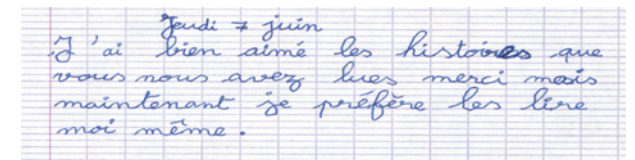 Jeudi 7 juin
J'ai bien aimé les histoires que
vous nous avez lues merci mais
maintenant je préfère les lire
moi même.